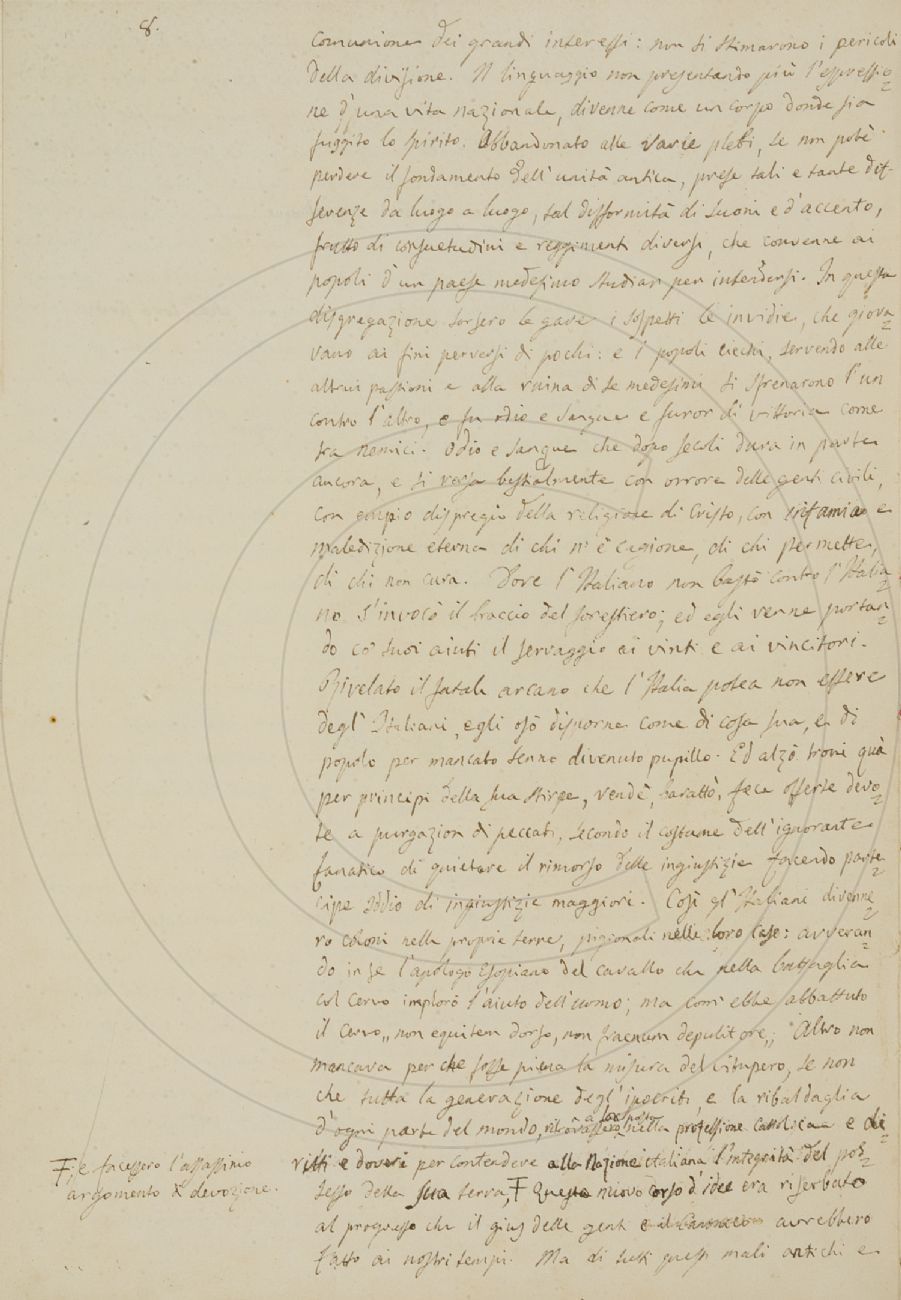 8.
comunione dei grandi interessi: non si stimarono i pericoli
della divisione. Il linguaggio non presentando più l'espressio=
ne d'una vita nazionale, divenne come un corpo donde sia
fuggito lo spirito. Abbandonato alle varie plebi, se non potè
perdere il fondamento dell'unità antica, prese tali e tante dif-
ferenze da luogo a luogo, tal difformità di suoni e d'accento,
frutto di consuetudini e reggimenti diversi, che convenne ai
popoli d'un paese medesimo studiar per intendersi. In questa
disgregazione sorsero le gare i sospetti le invidie, che giova=
vano ai fini perversi di pochi: e i popoli ciechi, servendo alle
altrui passioni e alla ruina di se medesimi si sfrenarono l'un
contro l'altro, e fu odio e sangue e furor di vittoria come
tra nemici. Odio e sangue che dopo secoli dura in parte
ancora, e si versa bestialmente con orrore delle genti civili,
con empio dispregio della religione di Cristo, con infamia e
maledizione eterna di chi n'è cagione, di chi permette,
di chi non cura. Dove l'Italiano non bastò contro l'Italia=
no s'invocò il braccio del forestiero; ed egli venne portan=
do co' suoi aiuti il servaggio ai vinti e ai vincitori.
Rivelato il fatale arcano che l'Italia potea non essere
degl'Italiani, egli osò disporne come di cosa sua, e di
popolo per mancato senno divenuto pupillo. Ed alzò troni quà
per principi della sua stirpe, vendè, barattò, fece offerte devo=
te a purgazion di peccati, secondo il costume dell'ignorante
fanatico di quietare il rimorso delle ingiustizie facendo parte=
cipe Iddio di ingiustizie maggiori. Così gl'Italiani divenne=
ro coloni nelle proprie terre, pigionali nelle loro case: avveran=
do in se l'apologo Esopiano del cavallo che nella battaglia
col Cervo implorò l'aiuto dell'uomo; ma com'ebbe abbattuto
il Cervo „non equitem dorso, non fraenum depulit ore„ Altro non
mancava perche fosse piena la misura del vitupero, se non
che tutta la generazione degl'ipocriti e la ribaldaglia
d'ogni parte del mondo, nella professione Cattolica e di=
ritti e doveri per contendere alla Nazione italiana l'integrità del pos=
sesso della sua terra, Ŧ Questo nuovo corso d'idee era riserbato
Ŧ, e facessero l'assassinio
argomento di devozione.
al progresso che il gius delle genti e il avrebbero
fatto ai nostri tempi. Ma di tutti questi mali antichi e